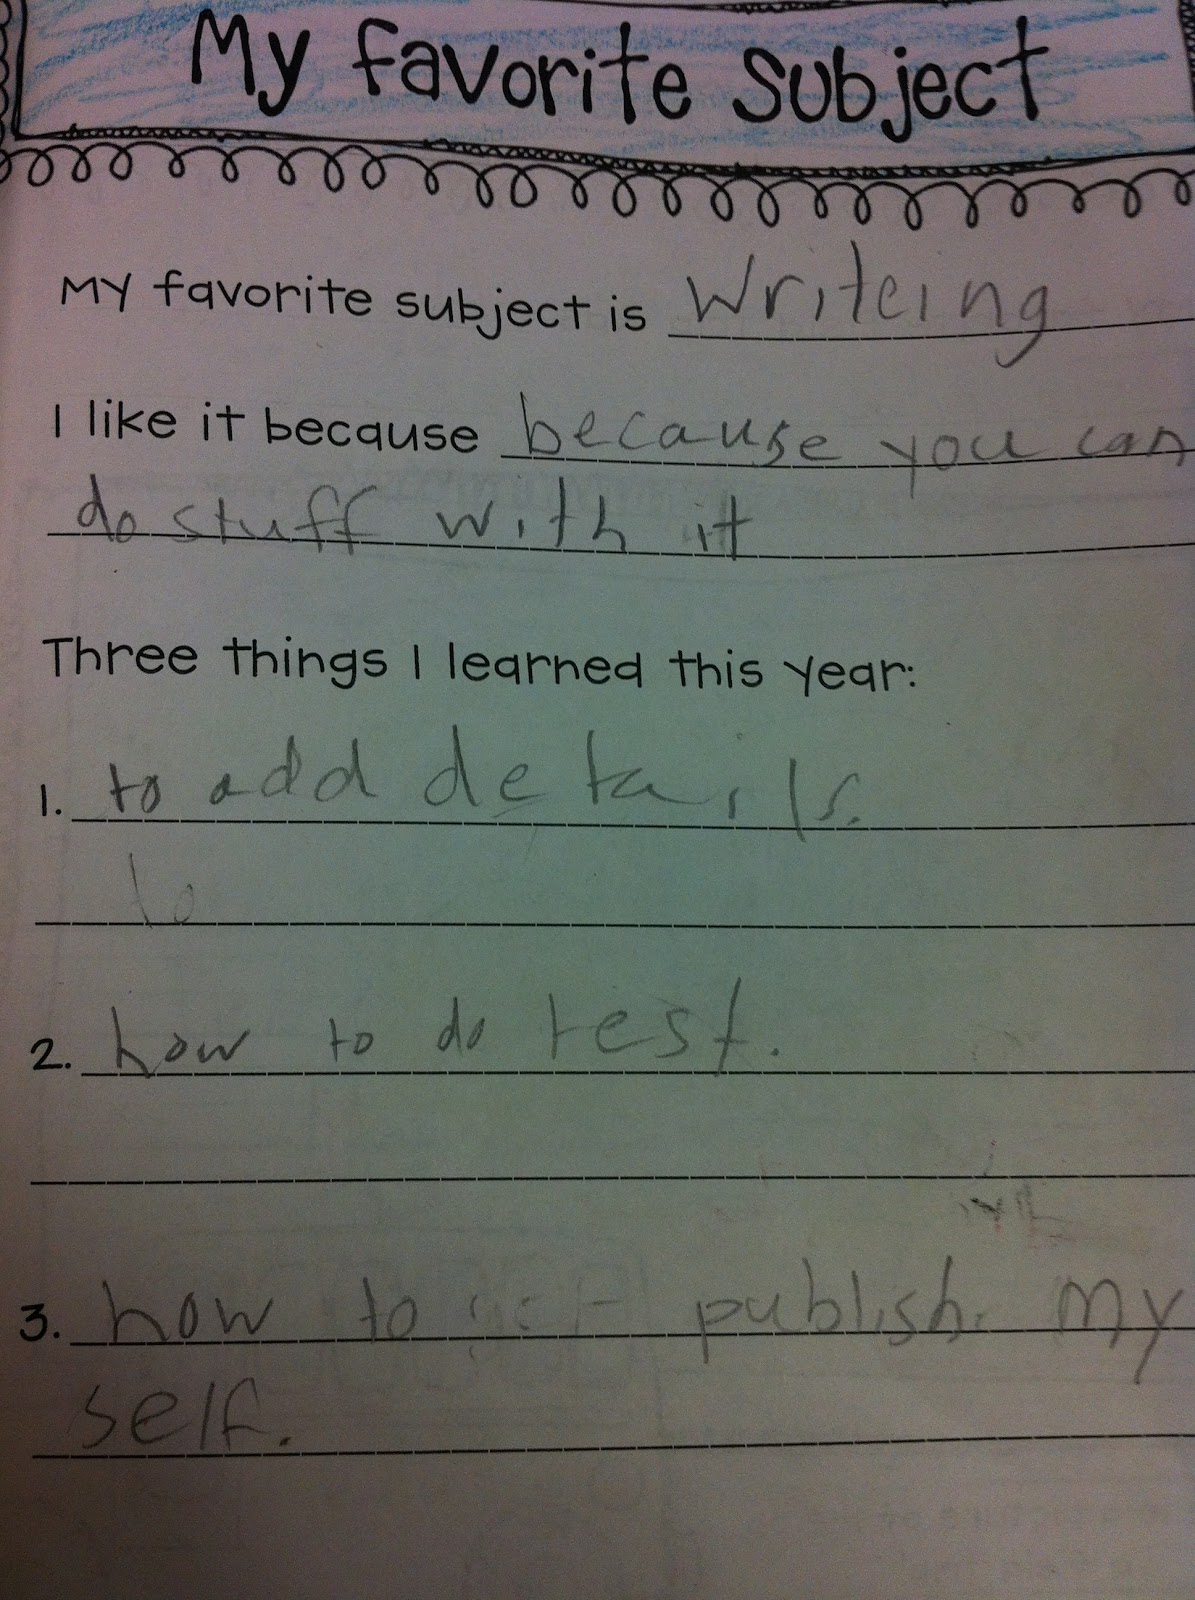 My favorite subject
My favorite subject is Writeing
I like it because because you can
do stuff with it
Three things I learned this year:
1. to add details.
to
2. how to do test.
3. how to publish. my
self.